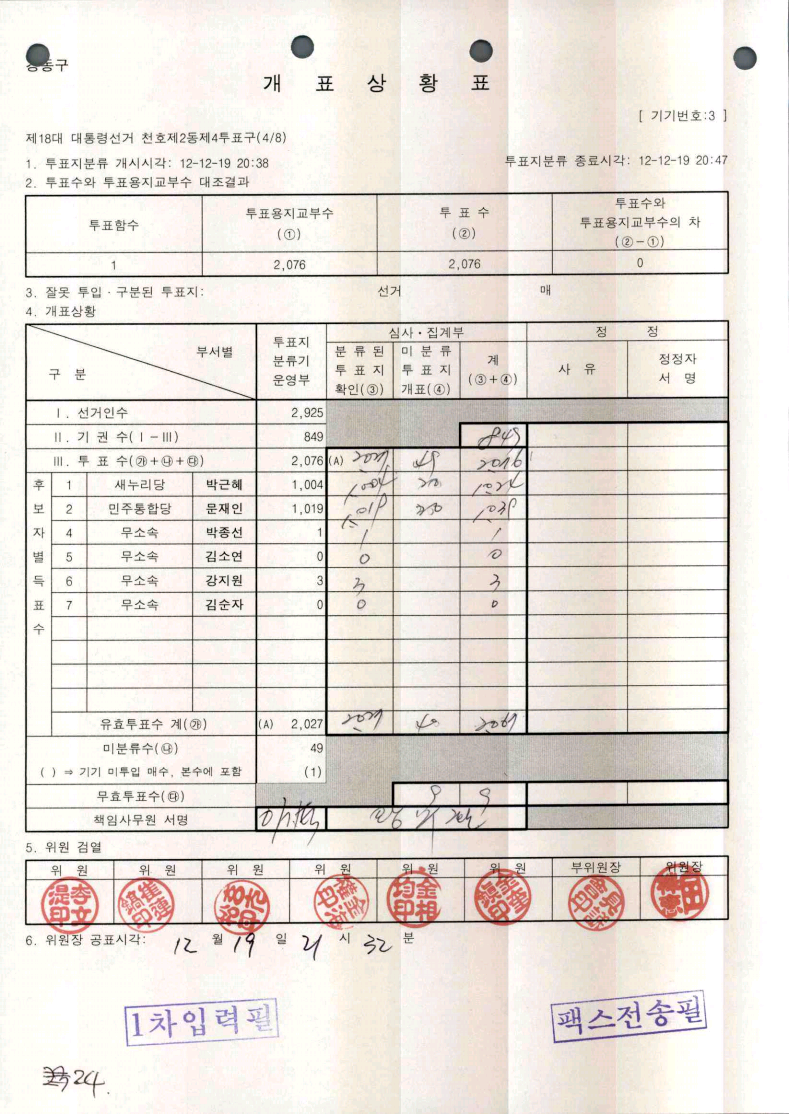 강동구
개 표 상 황 표
[ 기기번호:3 ]
제18대 대통령선거 천호제2동제4투표구(4/8)
1. 투표지분류 개시시각: 12-12-19 20:38 투표지분류 종료시각: 12-12-19 20:47
2. 투표수와 투표용지교부수 대조결과
투표함수 투표용지교부수 (①) 투 표 수 (②) 투표수와 투표용지교부수의 차 (②-①)
1 2,076 2,076 0
3. 잘못 투입 · 구분된 투표지: 선거 매
4. 개표상황
구 분 부서별 투표지 분류기 운영부 심사·집계부 정 정
분 류 된 투 표 지 확인(③) 미 분 류 투 표 지 개표(④) 계 (③+④) 사 유 정정자 서 명
Ⅰ. 선거인수 2,925
Ⅱ. 기 권 수(Ⅰ-Ⅲ) 849 849
Ⅲ. 투 표 수(㉮+㉯+㉰) 2,076 (A) 2027 49 2076
후보자별득표수
1 새누리당 박근혜 1,004 1,004 20 1,024
2 민주통합당 문재인 1,019 1,019 20 1,039
4 무소속 박종선 1 1 1
5 무소속 김소연 0 0 0
6 무소속 강지원 3 3 3
7 무소속 김순자 0 0 0
유효투표수 계(㉮) (A) 2,027 2027 40 2067
미분류수(㉯) 49
( ) ⇒ 기기 미투입 매수, 본수에 포함 (1)
무효투표수(㉰) 9 9
책임사무원 서명
5. 위원 검열
위 원 위 원 위 원 위 원 위 원 위 원 부위원장 위원장
6. 위원장 공표시각: 12 월 19 일 21 시 32 분
1차입력필
팩스전송필
24.